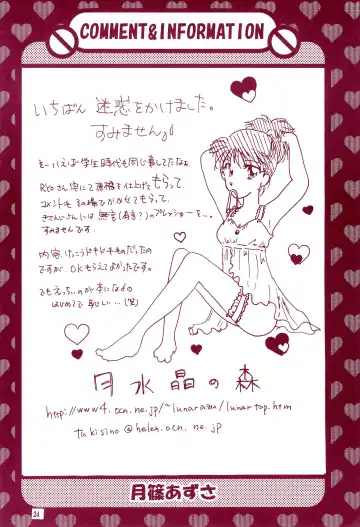 COMMENT&INFORMATION
いちばん 迷惑をかけました。
すみません
そーいえば学生時代も同じ事してたなぁ
Ryoさん宅にて原稿を仕上げてもらって、
コメントもその場でかかせてもらって。
すみませんです。
内容、けっこうドキドキものだったの
ですが、OKもらえてよかったです。
でもえっちぃのが本になるの
はじめてで 恥しい…(笑)
月水晶の森
http://www4.ocn.ne.jp/~lunarazu/lunartop.htm
tukisino@helen.ocn.ne.jp
月篠あずさ